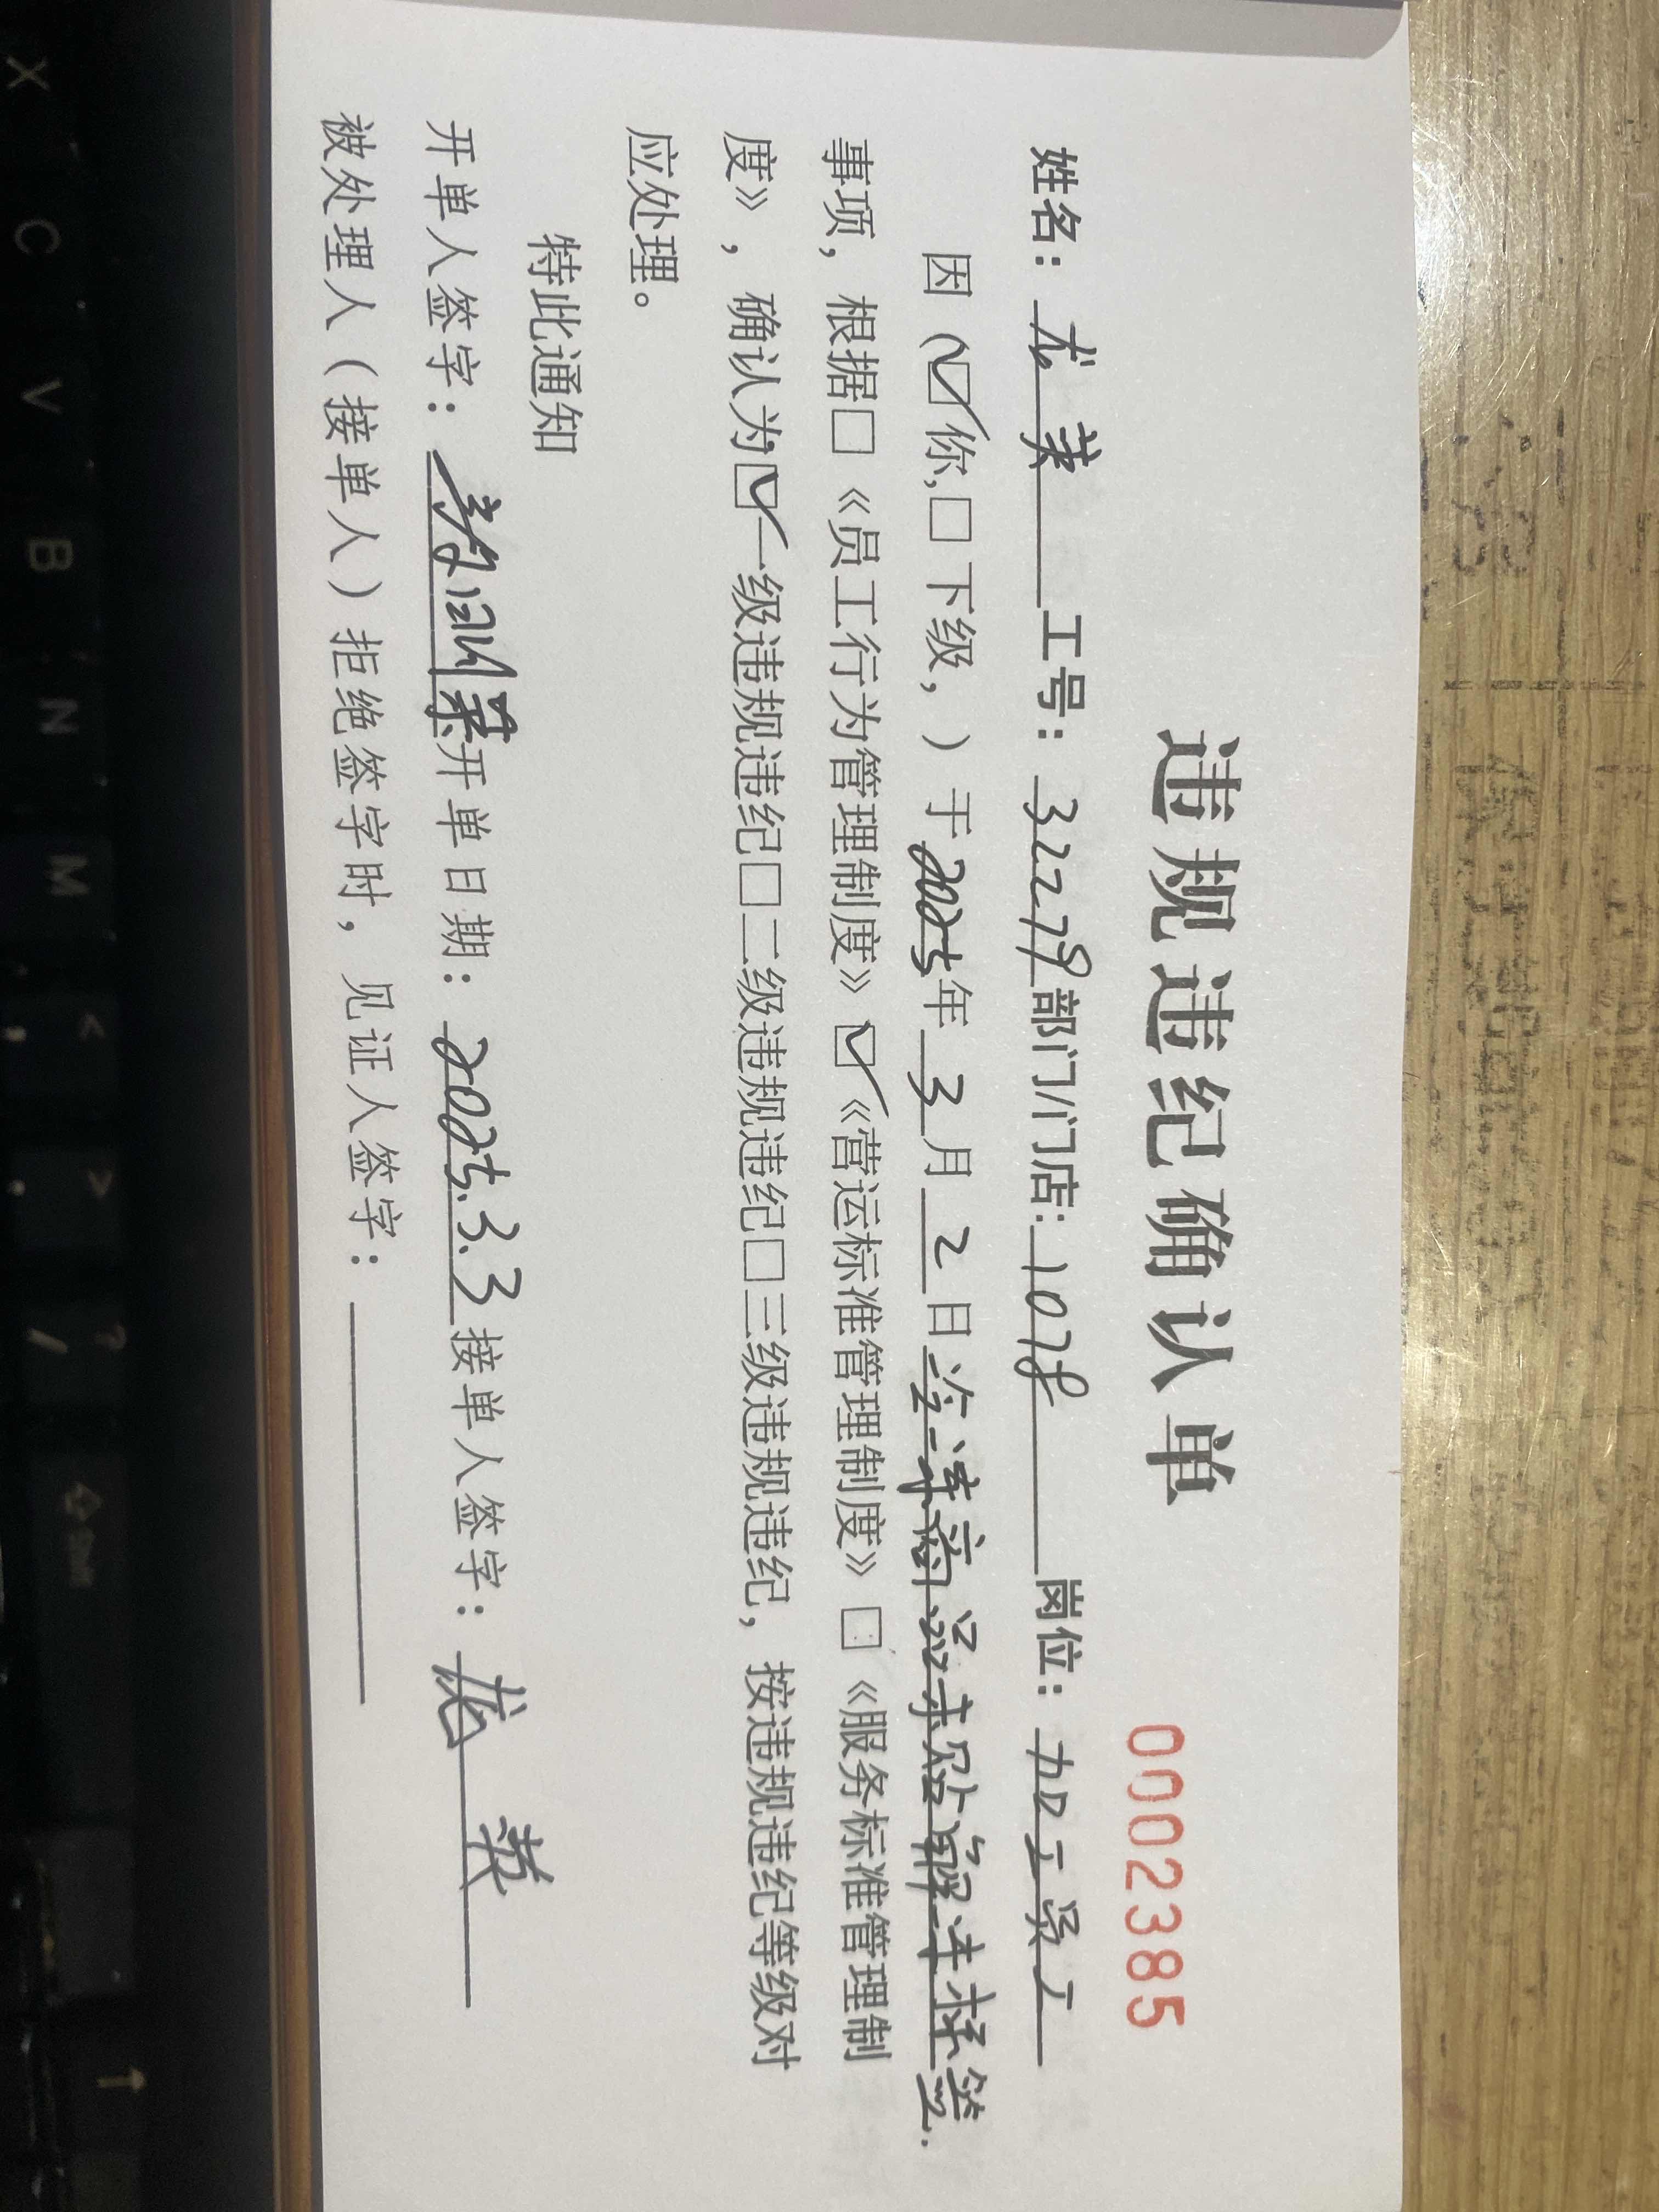 违规违纪确认单
00002385
姓名：龙英 工号：32279 部门/门店：1078 岗位：加工员工
因（☑你，□下级，）于2025年3月2日冷冻商品未贴解冻标签.
事项，根据□《员工行为管理制度》☑《营运标准管理制度》□《服务标准管理制
度》，确认为☑一级违规违纪□二级违规违纪□三级违规违纪，按违规违纪等级对
应处理。
特此通知
开单人签字： 开单日期：2025.3.3 接单人签字：龙英
被处理人（接单人）拒绝签字时，见证人签字：
X C V B N M < , > . ? /